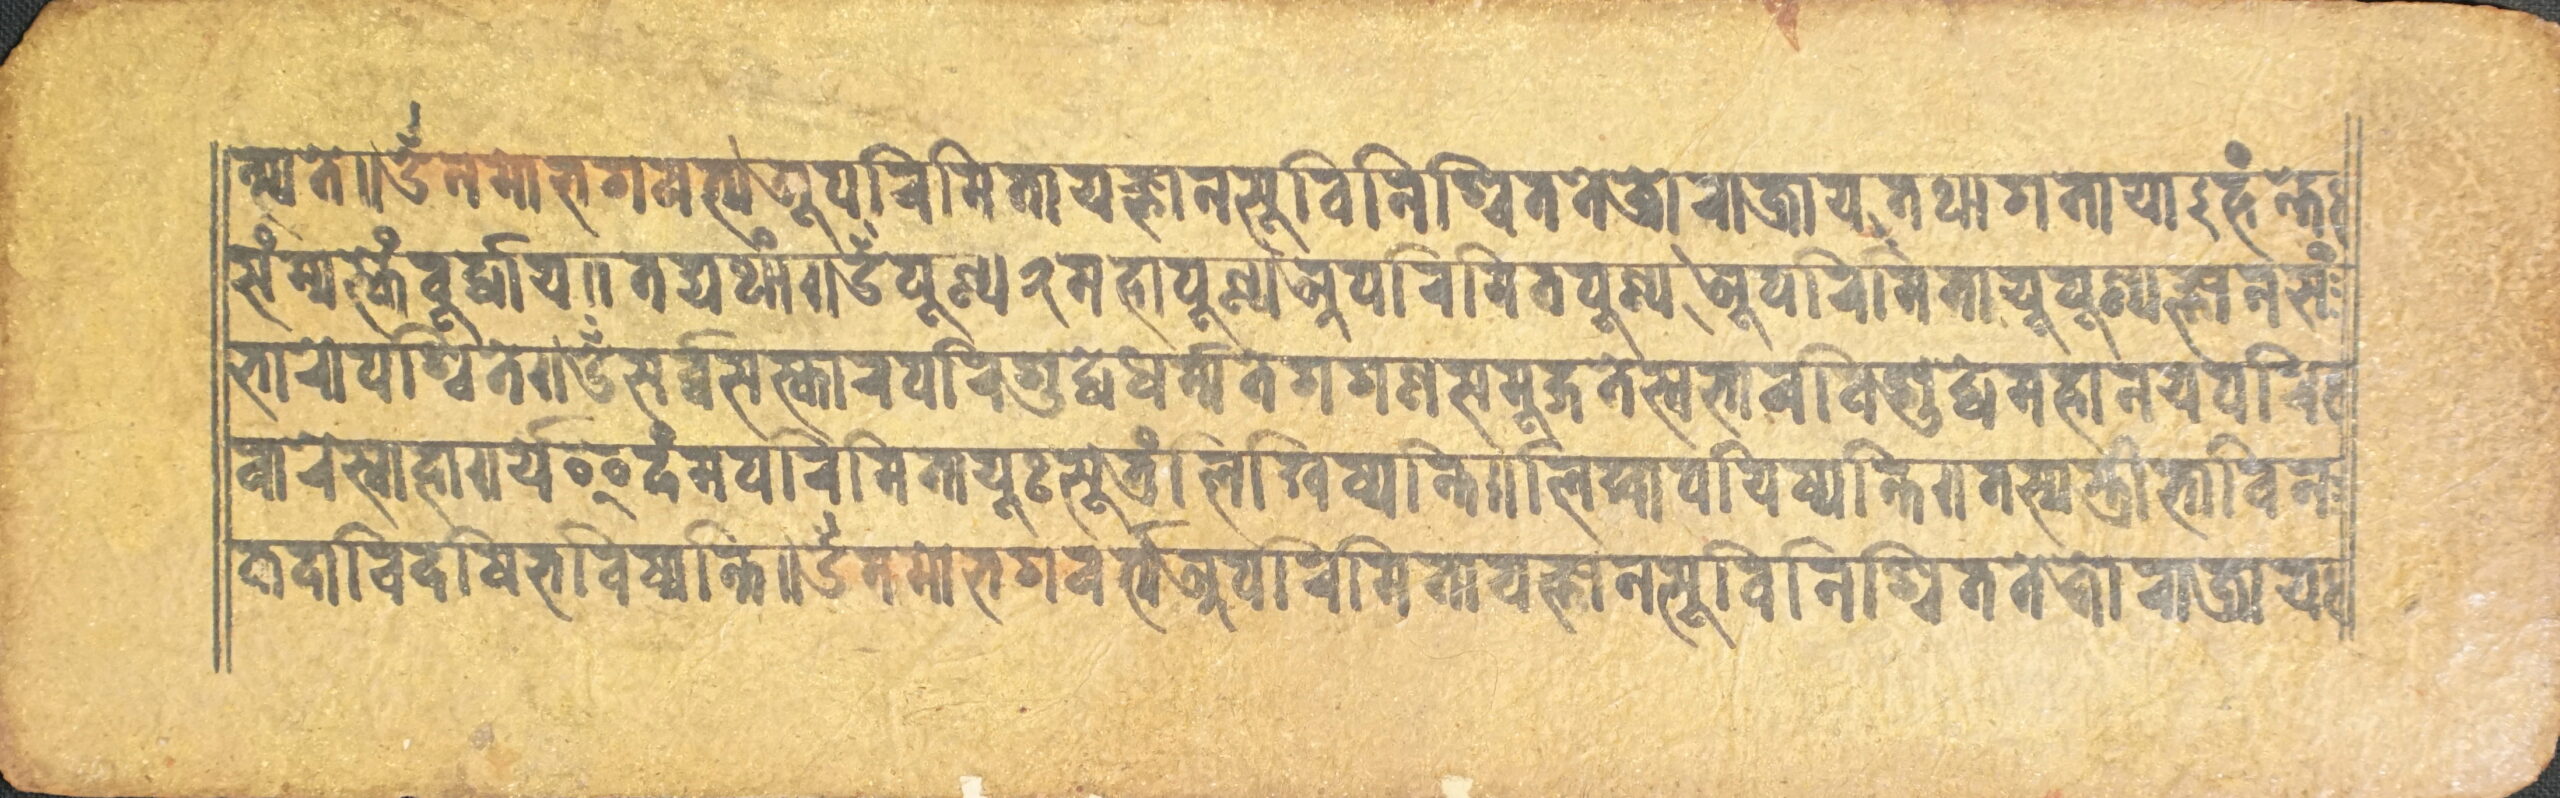 त्पद्यते॥ ॐ नमो भगवत्य अपरिमितायज्ञानसूविनिश्चिततेजोराजाय तथागतायाऽर्हंन्ते
संम्यक्संवूर्द्धाय॥ तद्यथां॥ ॐ पूण्य २ महापूण्य अपरिमितपूण्य अपरिमितायूपूण्यज्ञानसं
भारोपश्चिते॥ ॐ सर्व्वसस्कारपरिशुद्धेधर्म्मतेगगणसमुद्गतेस्वभावविशुद्धेमहानयपरि
वारेस्वाहा॥ र्य इदंमपरिमितायूःसूत्रं लिखिष्यन्ति॥ लिखापयिष्यन्ति॥ तस्यस्त्रीभाविन
कदाचिदपिभविष्यन्ति॥ ॐ नमोभगवर्त्यअपरिमितायज्ञानसूविनिश्चिततेजोराजाय